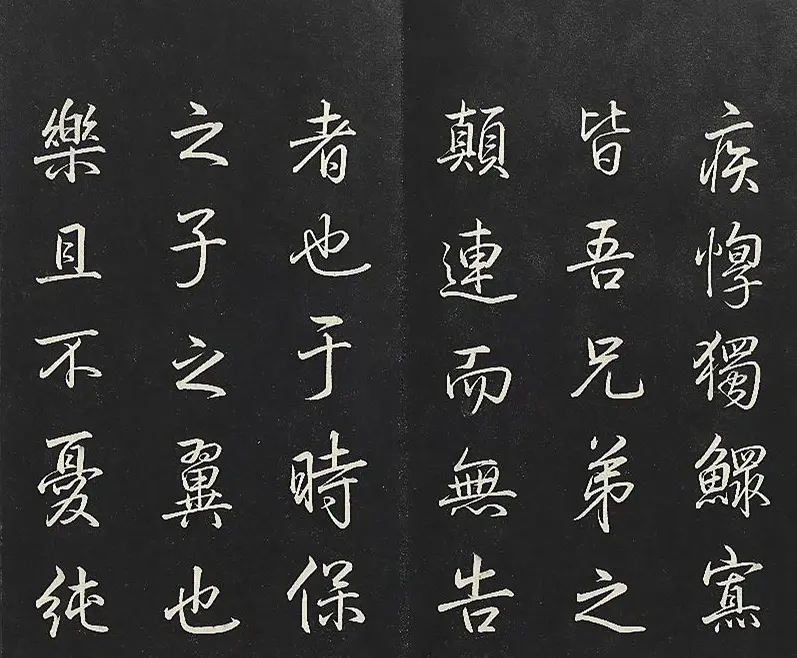 疾惸獨鰥寡
皆吾兄弟之
顛連而無告
者也于時保
之子之翼也
樂且不憂純